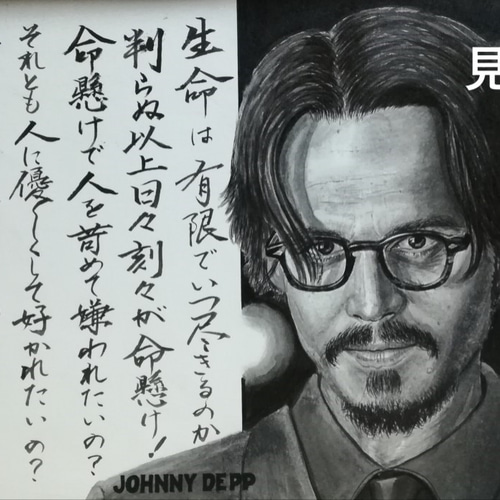 生命は有限でいつ尽きるのか
判らぬ以上日々刻々が命懸け!
命懸けで人を苛めて嫌われたいの?
それとも人に優しくして好かれたいの?
JOHNNY DEPP
見